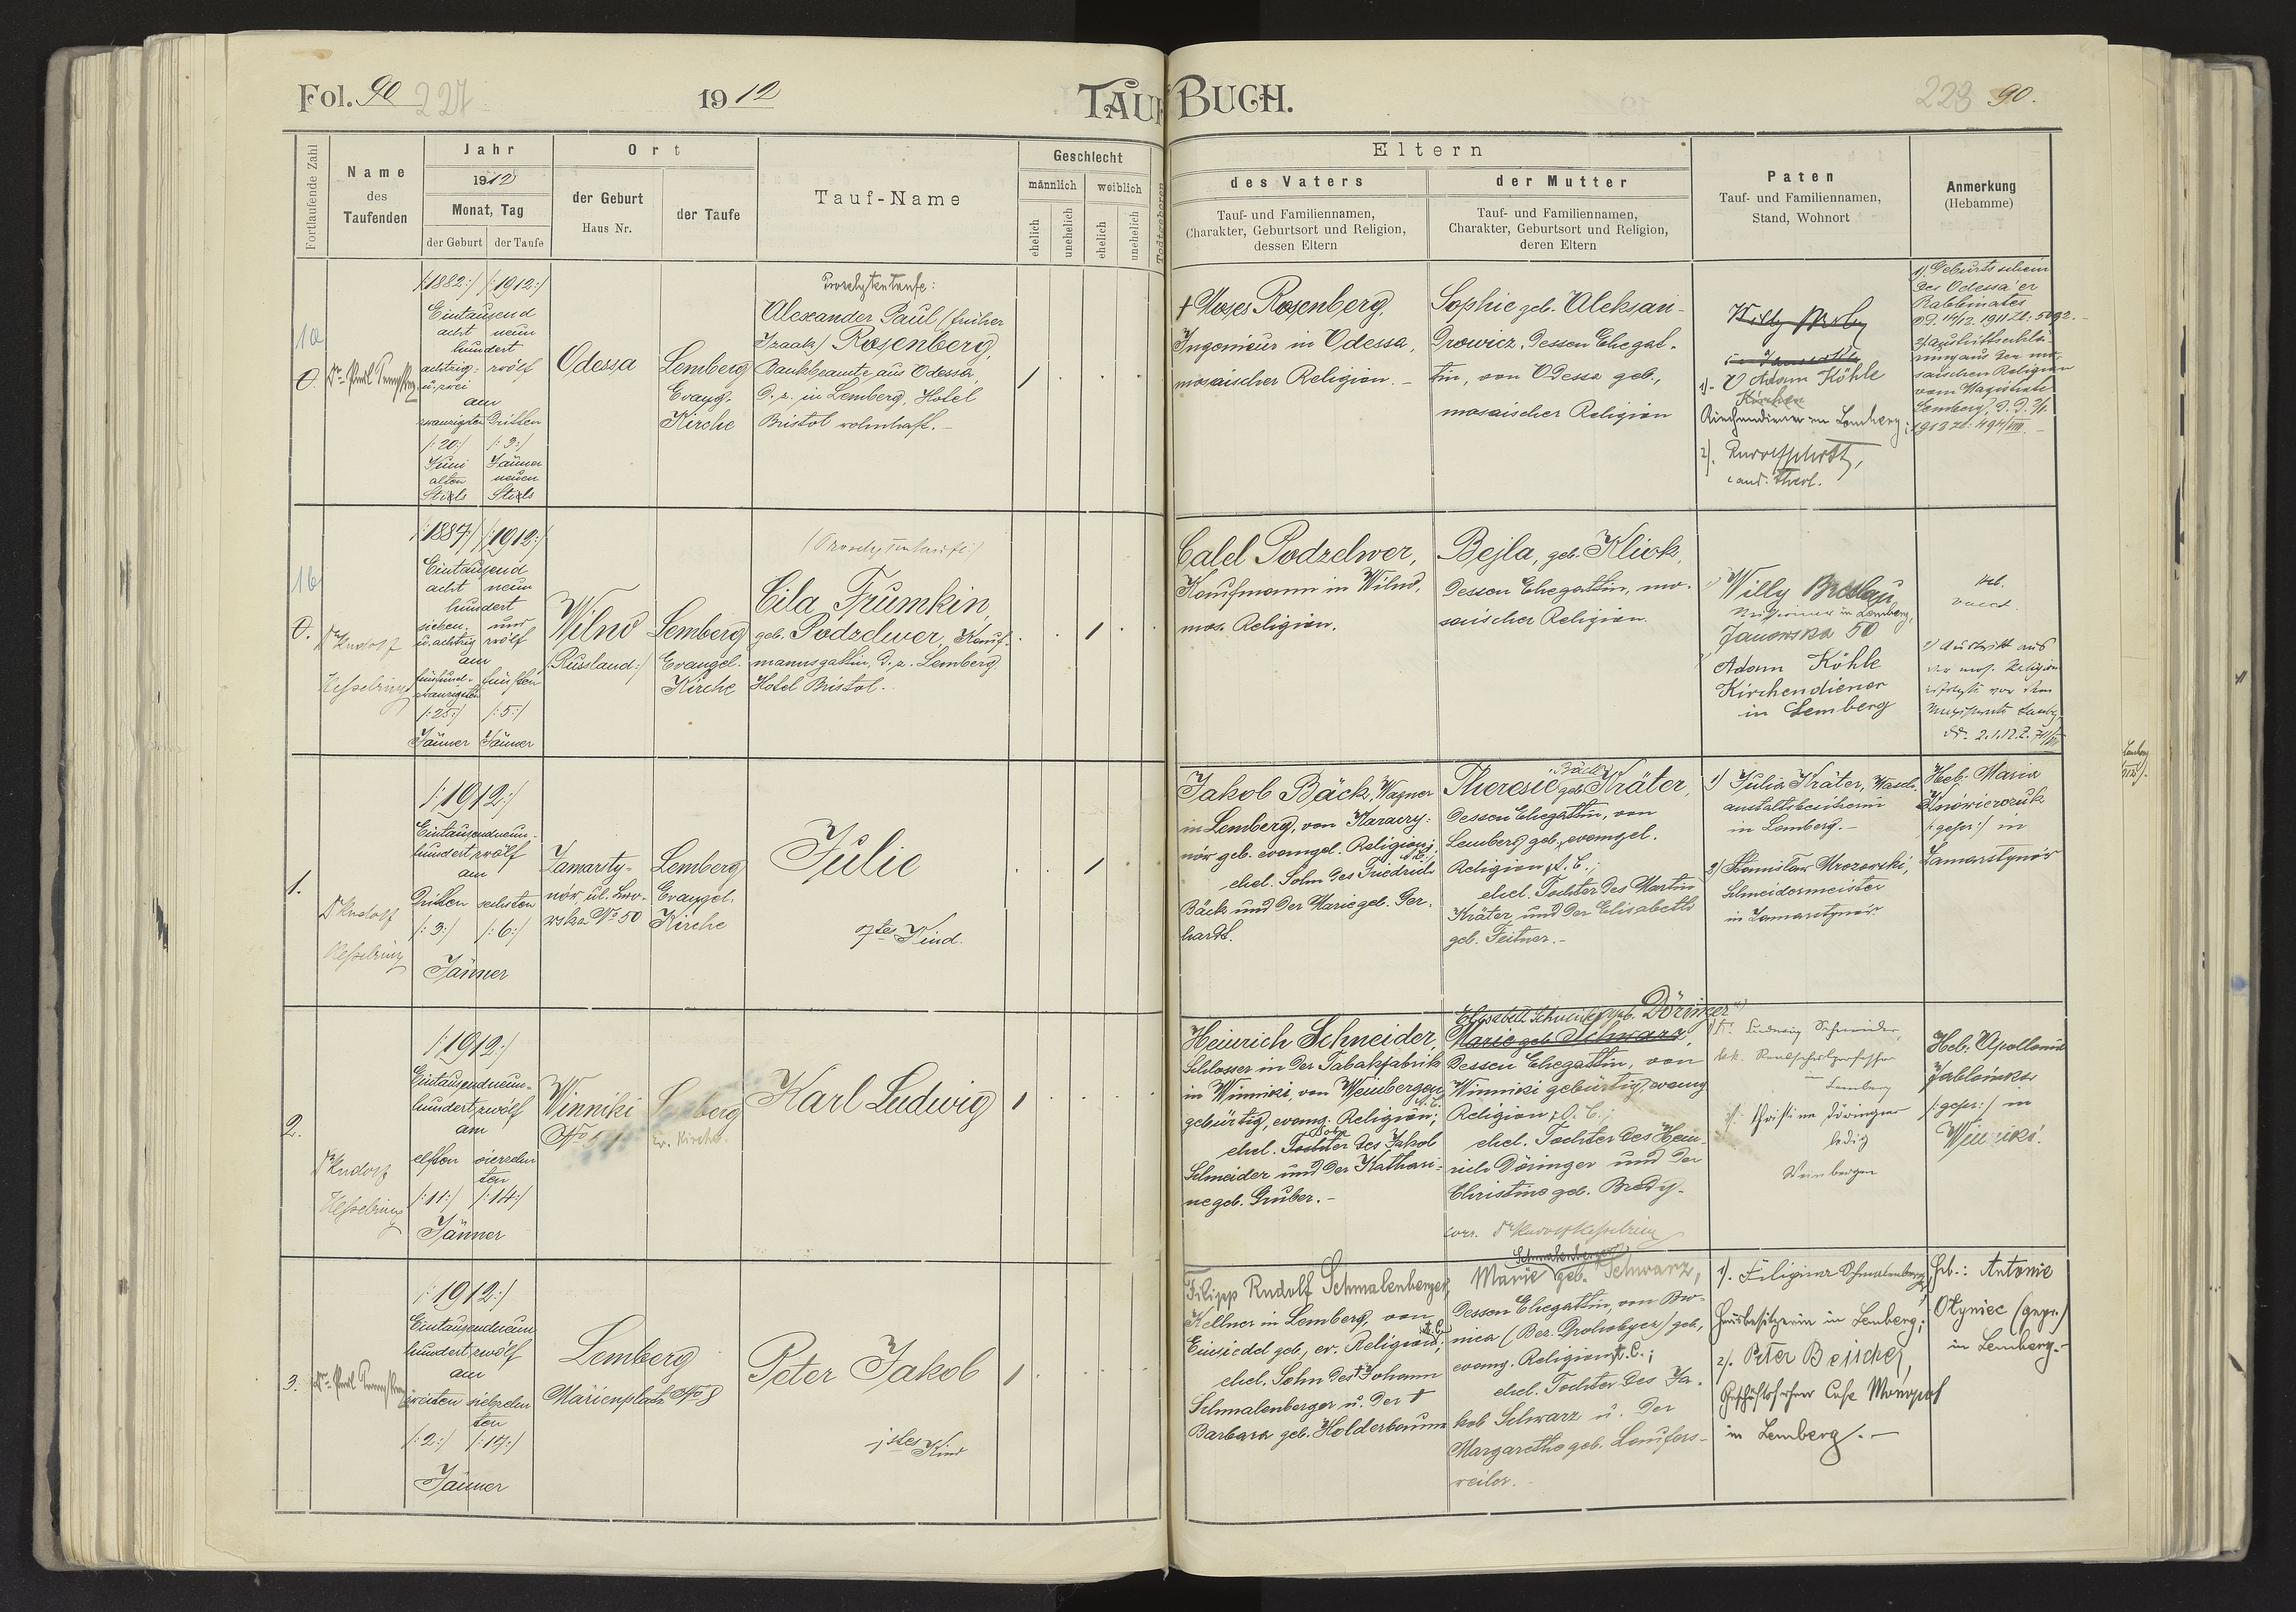 Fol. 90 227
1912
TAUF BUCH.
223 90.
Fortlaufende Zahl
Name
des
Taufenden
Jahr
1912
Monat, Tag
der Geburt
der Taufe
Ort
der Geburt
Haus Nr.
der Taufe
Tauf-Name
Geschlecht
männlich
weiblich
ehelich
unehelich
ehelich
unehelich
Todtgeboren
Eltern
des Vaters
Tauf- und Familiennamen,
Charakter, Geburtsort und Religion,
dessen Eltern
der Mutter
Tauf- und Familiennamen,
Charakter, Geburtsort und Religion,
deren Eltern
Paten
Tauf- und Familiennamen,
Stand, Wohnort
Anmerkung
(Hebamme)
1a
0.
/:1882:/ /:1912:/
Eintausend
acht neun
hundert
achtzig zwölf
u. zwei
am
zwanzigsten Dritten
/:20:/ /:3:/
Juni Jänner
alten neuen
Stiels Stiels
Odessa
Lemberg
Evang.
Kirche
Proselytentaufe:
Alexander Paul (früher
Izaak) Rosenberg,
Bankbeamte aus Odessa,
d. z. in Lemberg, Hotel
Bristol wohnhaft.-
1
† Moses Rosenberg,
Ingenieur in Odessa,
mosaischer Religion.-
Sophie geb. Aleksan-
drowicz, dessen Ehegat-
tin, von Odessa geb.,
mosaischer Religion
1)- Adam Köhle
Kirchen
Kirchendiener in Lemberg;
2).
cand. theol.
1) Geburtsschein
des Odessa'er
Rabbinates
d.d. 14/12. 1911 Zl: 5092.-
saischen Religion
vom Magistrate
Lemberg, d.d. 2/1.
1912 Zl: 494/VIII.-
1b
0.
Dr Rudolf
Kesselring
/:1887:/ /:1912:/
Eintausend
acht neun
hundert
sieben- und
u. achtzig zwölf
am
fünfund- fünften
zwanzigsten
/:25:/ /:5:/
Jänner Jänner
Wilno
/:Russland:/
Lemberg
Evangel.
Kirche
(Proselytentaufe)
Cila Frumkin
geb. Podzelwer, Kauf-
mannsgattin, d. z. Lemberg,
Hotel Bristol.
1
Calel Podzelwer,
Kaufmann in Wilno,
mos. Religion.
Bejla, geb. Kliok,
dessen Ehegattin, mo-
saischer Religion.
1) Willy Breslau,
in Lemberg,
Janowska 50
Adam Köhle
Kirchendiener
in Lemberg
Heb.
vacat.
2) Austritt aus
der mos. Religion
erfolgte vor dem
Magistrate Lembg.
1.
Dr Rudolf
Kesselring
/:1912:/
Eintausendneun-
hundertzwölf
am
Dritten sechsten
/:3:/ /:6:/
Jänner
Zamarsty-
nów, ul. Lwo-
wska No 50
Lemberg
Evangel.
Kirche
Julie
7tes Kind.
1
Jakob Bäck, Wagner
in Lemberg, von Karaczy-
nów geb. evangel. Religion A.C.;
ehel. Sohn des Friedrich
Bäck und der Marie geb. Ger-
hardt.
Bäck
Theresie geb. Kräter,
dessen Ehegattin, von
Lemberg geb., evangel.
Religion A.C.;
ehel. Tochter des Martin
Kräter und der Elisabeth
geb. Feitner.-
1) Julia Kräter, Wasch-
in Lemberg.-
2) Stanislaw Mrozowski,
Schneidermeister
in Zamarstynów
Heb: Maria
/:gepr:/ in
Zamarstynów
2.
Dr Rudolf
Kesselring
/:1912:/
Eintausendneun-
hundertzwölf
am
elften vierzehn-
ten
/:11:/ /:14:/
Jänner
Winniki
Lemberg
Ev. Kirche.
Karl Ludwig
1
Heinrich Schneider,
Schlosser in der Tabakfabrik
in Winniki, von Weinbergen
gebürtig, evang. Religion A.C.;
Sohn
ehel. Tochter des Jakob
Schneider und der Kathari-
ne geb. Gruber.-
Elisabeth Schneider geb. Döringer
Marie geb. Schwarz,
dessen Ehegattin, von
Winniki gebürtig, evang
Religion A.C.;
ehel. Tochter des Hein-
rich Döringer und der
Christine geb. Bredy.-
corr. Dr Rudolf Kesselring
Ludwig Schneider,
k.k. Realschulprofessor
in
Lemberg
2). Christine Döringer
ledig
Weinbergen
Heb: Apollonia
Jablońska
/:gepr:/ in
Winniki.
3.
/:1912:/
Eintausendneun-
hundertzwölf
am
zweiten siebzehn-
ten
/:2:/ /:17:/
Jänner
Lemberg
Marienplatz No 8
Peter Jakob
1stes Kind
1
Filipp Rudolf Schmalenberger,
Kellner in Lemberg, von
Einsiedel geb., ev. Religion A.C.;
ehel. Sohn des † Johann
Schmalenberger u. der †
Barbara geb. Holderbaum
Schmalenberger
Marie geb. Schwarz,
dessen Ehegattin, von Bro-
nica (Bez. Drohobycz) geb.,
evang. Religion A.C.;
ehel. Tochter des Ja-
kob Schwarz u. der
Margarethe geb. Laufers-
weiler.-
1). Filipina Schmalenberger,
Hausbesitzerin in Lemberg;
2). Peter Beischer,
Geschäftsführer Cafe Monopol
in Lemberg.-
Heb.: Antonie
Olyniec (gepr.)
in Lemberg.-